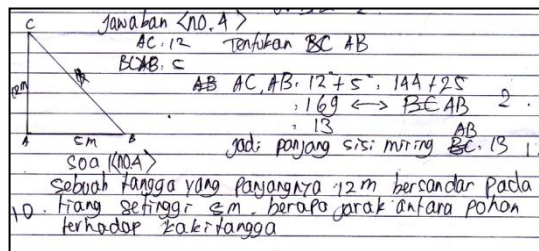 C
Jawaban <no.4>
AC : 12 Tentukan BC AB
BCAB : 5
12m
AB AC, AB : 12² + 5² : 144 + 25
: 169 ↔ BC AB 2.
: 13
A 5m B
AB
Jadi panjang sisi miring BC : 13 1
Soal <no.4>
sebuah tangga yang panjangnya 12 m bersandar pada
10. tiang setinggi 5m. berapa jarak antara pohon
terhadap kaki tangga